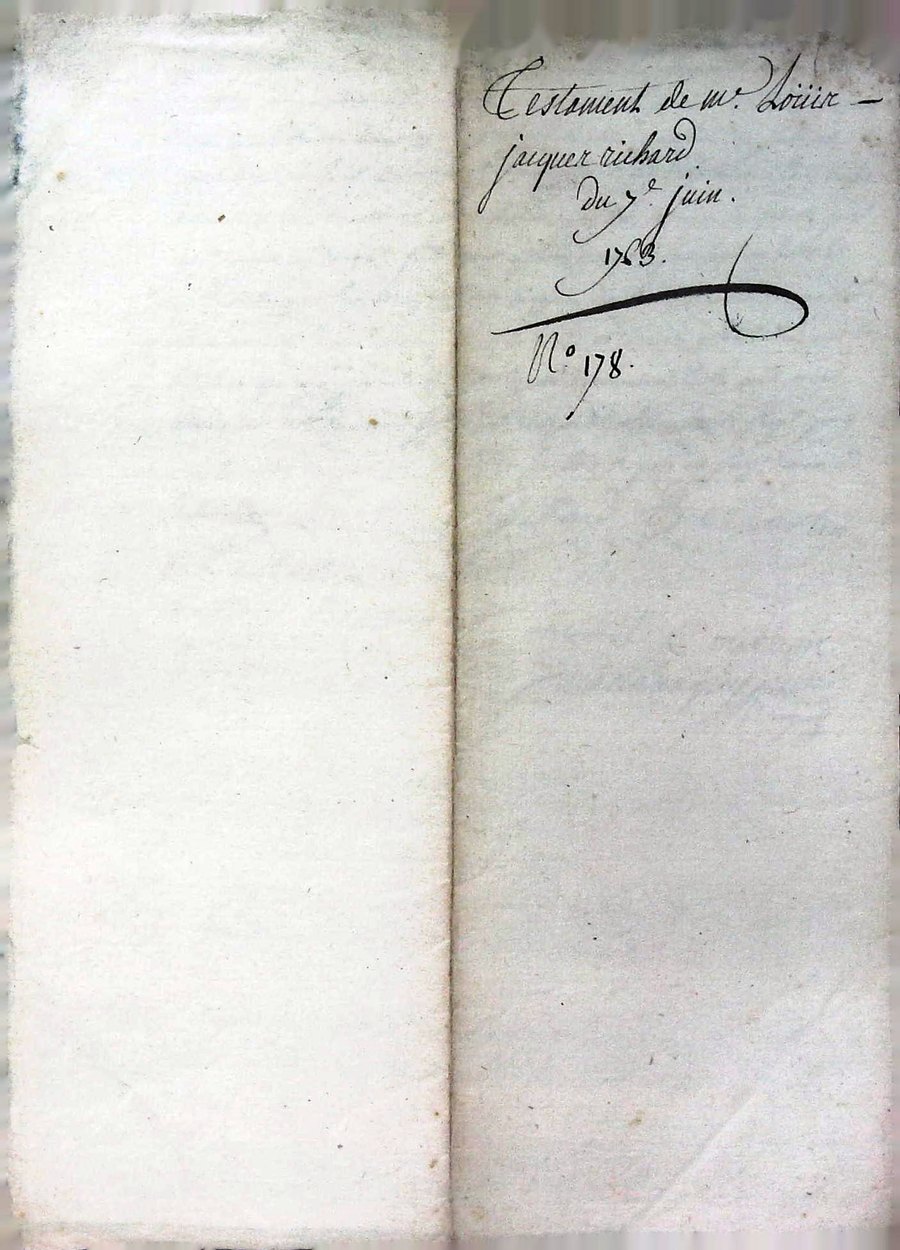 Testament de mr. Loüis –
jacques richard
du 7e juin.
1763.
No 178.